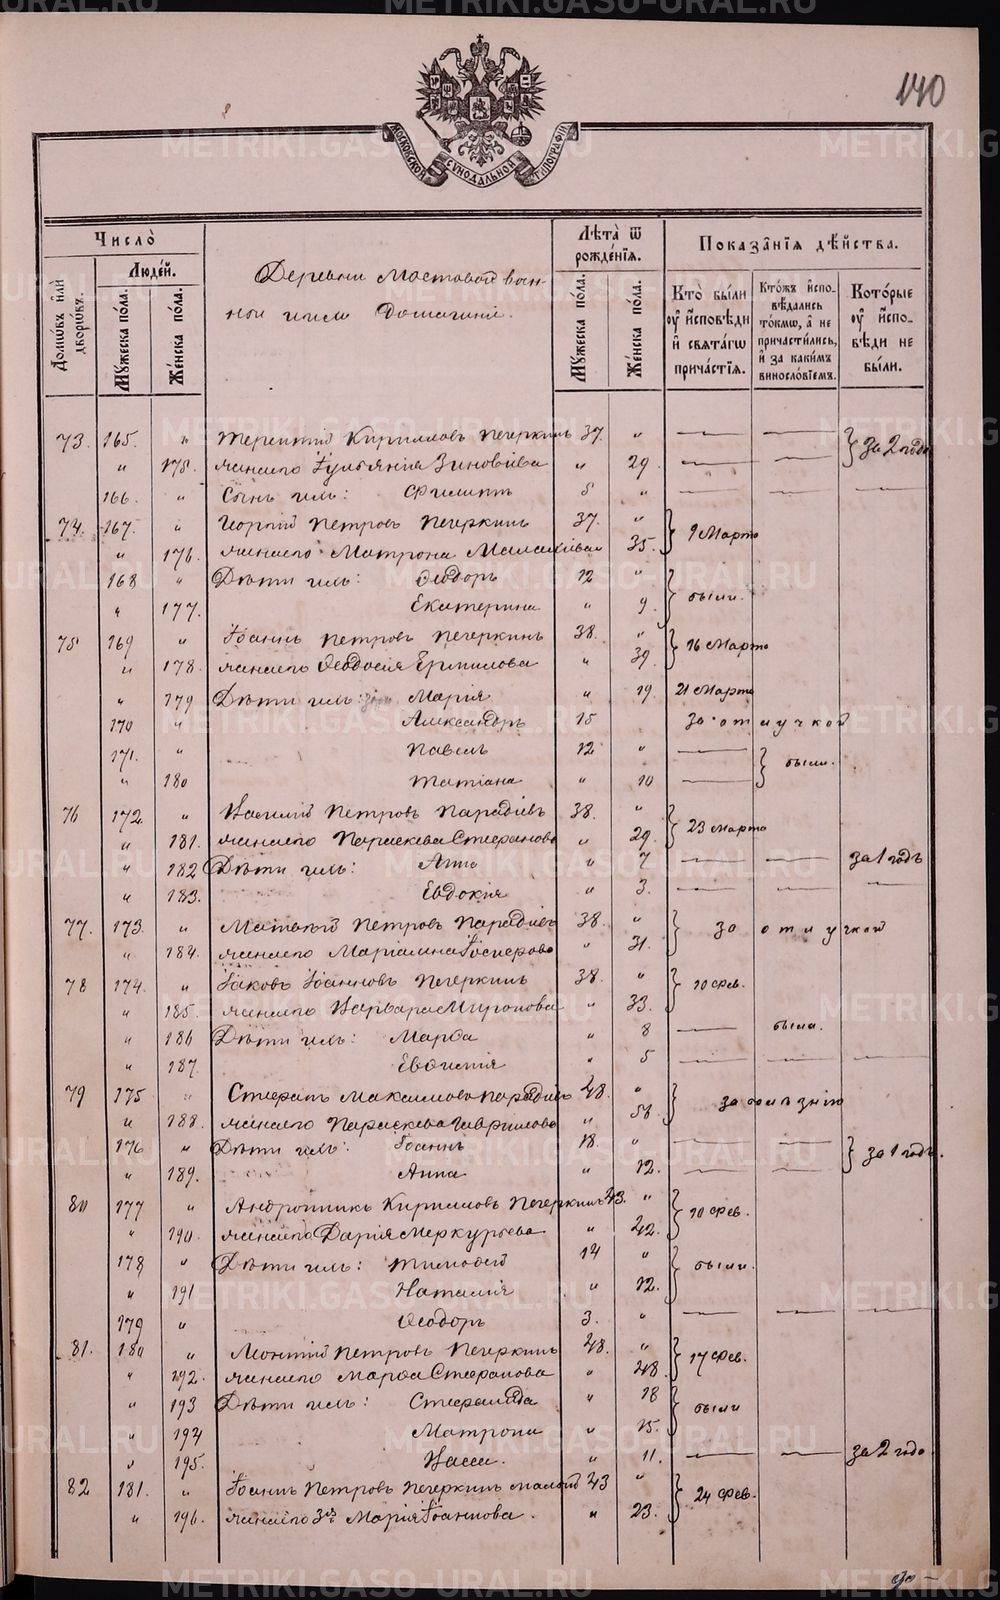 140
МОСКОВСКОЙ СѴНОДАЛЬНОЙ ТИПОГРАФІИ
Число̀
Людéй.
Домѡвъ и҆лѝ дворѡвъ.
Мꙋжеска пóла.
Жéнска пóла.
Деревни Мостовой воен-
нои и домашніе.
Лѣта̀ ѿ рождéнїѧ.
Мꙋжеска пóла.
Жéнска пóла.
Показа̑нїѧ дѣ́йства.
Кто̀ бы́ли ᲂу҆ и҆сповѣди и҆ свѧта́гѡ прича́стїѧ.
Кто́жъ и҆спо-вѣдались то́кмѡ, а҆ не причасти́лись, и҆ за каки́мъ винослóвїемъ.
Кото́рые ᲂу҆ и҆спо-вѣди не бы́ли.
73. 165. " Терентій Кирилловъ Печеркинъ 37. " — — } за 2 года
" 175. жена его Іуліанія Зиновіева " 29 — —
166. " Сынъ ихъ: Филиппъ 5 " — — —
74. 167. " Георгій Петровъ Печеркинъ 37. " } 9 Марта
" 176. жена его Матрона Малахіева 35.
168 " Дѣти ихъ: Ѳеодоръ 12 " } были.
" 177. Екатерина " 9
75 169 " Іоаннъ Петровъ Печеркинъ 38. " } 16 Марта
" 178. жена его Ѳеодосія Ермилова " 39.
" 179 Дѣти ихъ: Марія " 19. 21 Марта
170 " Александръ 15 за отлучкой
171. " Павелъ 12 " — } были.
" 180 Татіана " 10 —
76 172. " Василій Петровъ Парадіевъ 38. " } 23 Марта
" 181. жена его Параскева Стефанова " 29.
" 182 Дѣти ихъ: Анна " 7 — — за 1 годъ
" 183. Евдокія " 3. — — —
77. 173. " Матвѣй Петровъ Парадіевъ 38. " } за отлучкой
" 184. жена его Маріамна " 31.
78 174. " Іаковъ Іоанновъ Печеркинъ 38. " } 10 Фев.
" 185. жена его Варвара Миронова " 33.
" 186 Дѣти ихъ: Марѳа " 8 — была.
" 187. Евѳимія " 5 — — —
79 175 " Стефанъ Максимовъ Парадіевъ 48. " } за болѣзнію
" 188. жена его Параскева Гаврилова " 58.
176 " Дѣти ихъ: Іоаннъ 18. " — — } за 1 годъ.
" 189. Анна " 12. — —
80 177 " Андроникъ Кирилловъ Печеркинъ 43. " } 10 Фев.
" 190. жена его Дарія Меркурьева " 42.
178 " Дѣти ихъ: Тимоѳей 14 " } были.
" 191 Наталія " 12.
179 " Ѳеодоръ 3. " — — —
81. 180 " Леонтій Петровъ Печеркинъ 48. " } 17 Фев.
" 192. жена его Марѳа Стефанова " 48.
" 193 Дѣти ихъ: Стефанида " 18 } были
" 194 Матрона " 15.
" 195. Васса. " 11. — — за 2 года.
82 181. " Іоаннъ Петровъ Печеркинъ малой 43 " } 24 Фев.
" 196. жена его Марія Іоаннова. " 23.
METRIKI.GASO-URAL.RU